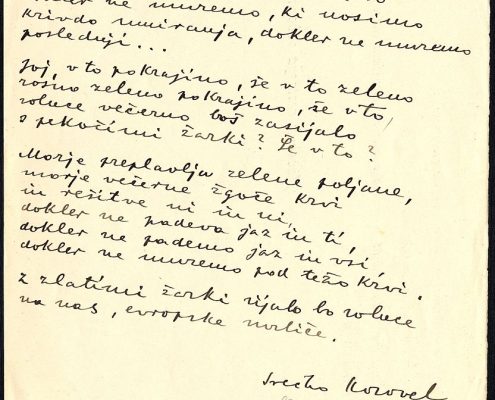 dokler ne umremo, ki nosimo
krivdo umiranja, dokler ne umremo
poslednji...
Joj, v to pokrajino, še v to zeleno
rosno zeleno pokrajino, še v to,
solnce večerno boš zasijalo
s pekočimi žarki? Še v to?
Morje preplavlja zelene poljane,
morje večerne žgoče krvi
in rešitve ni in ni,
dokler ne padeva jaz in ti,
dokler ne pademo jaz in vsi,
dokler ne umremo pod težo krvi.
Z zlatimi žarki sijalo bo solnce
na nas, evropske mrliče.
Srečko Kosovel